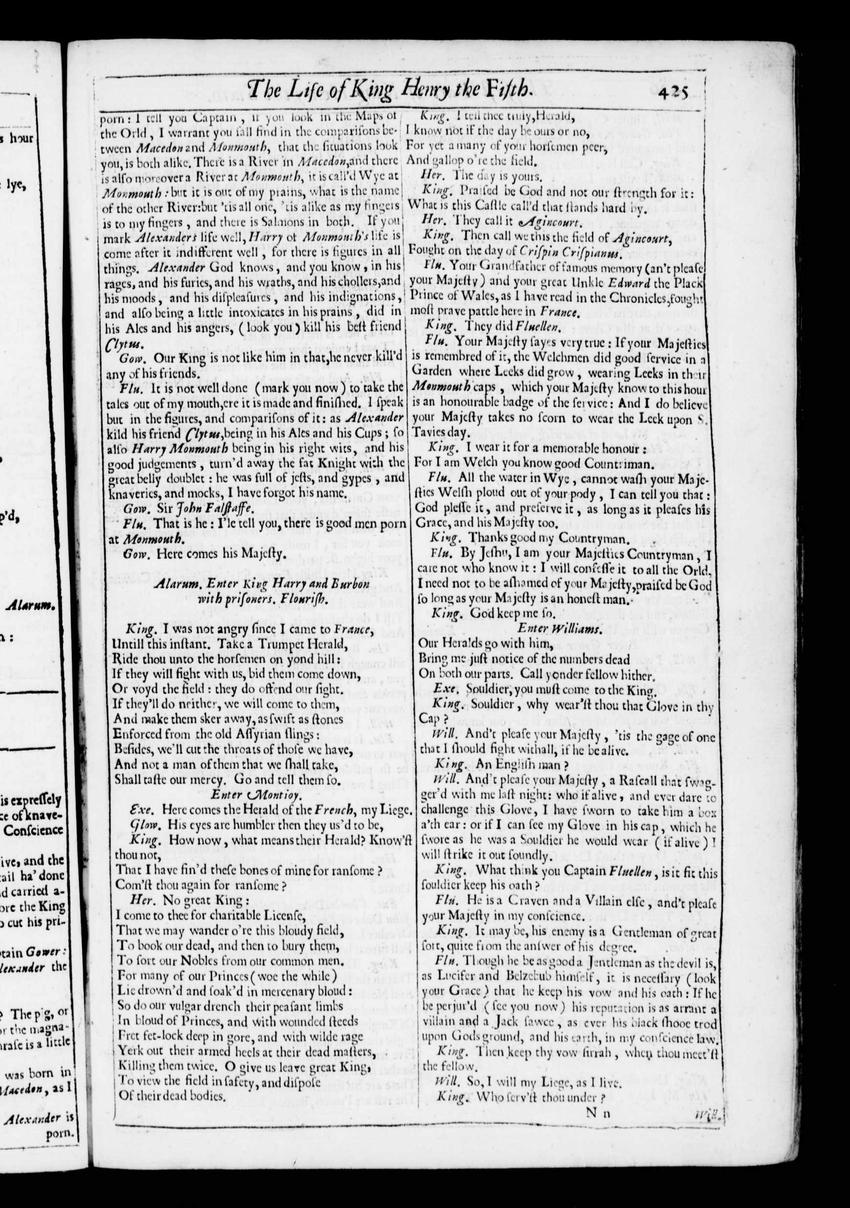 s hour
lye,
p'd,
Alarum.
n:
is expressely
ce of knave-
Conscience
ive, and the
ail ha' done
d carried a-
ore the King
o cut his pri-
ptain Gower:
lexander the
? The pig, or
or the magna-
hrase is a little
was born in
Macedon, as I
Alexander is
porn.
The Life of King Henry the Fifth.
425
porn: I tell you Captain, if you look in the Maps of
the Orld, I warrant you sall find in the comparisons be-
tween Macedon and Monmouth, that the situations look
you, is both alike. There is a River in Macedon, and there
is also moreover a River at Monmouth, it is call'd Wye at
Monmouth: but it is out of my prains, what is the name
of the other River: but 'tis all one, 'tis alike as my fingers
is to my fingers, and there is Salmons in both. If you
mark Alexanders life well, Harry of Monmouth's life is
come after it indifferent well, for there is figures in all
things. Alexander God knows, and you know, in his
rages, and his furies, and his wraths, and his chollers, and
his moods, and his displeasures, and his indignations,
and also being a little intoxicates in his prains, did in
his Ales and his angers, (look you) kill his best friend
Clytus.
Gow. Our King is not like him in that, he never kill'd
any of his friends.
Flu. It is not well done (mark you now) to take the
tales out of my mouth, ere it is made and finished. I speak
but in the figures, and comparisons of it: as Alexander
kild his friend Clytus, being in his Ales and his Cups; so
also Harry Monmouth being in his right wits, and his
good judgements, turn'd away the fat Knight with the
great belly doublet: he was full of jests, and gypes, and
knaveries, and mocks, I have forgot his name.
Gow. Sir John Falstaffe.
Flu. That is he: I'le tell you, there is good men porn
at Monmouth.
Gow. Here comes his Majesty.
Alarum. Enter King Harry and Burbon
with prisoners. Flourish.
King. I was not angry since I came to France,
Untill this instant. Take a Trumpet Herald,
Ride thou unto the horsemen on yond hill:
If they will fight with us, bid them come down,
Or voyd the field: they do offend our sight.
If they'll do neither, we will come to them,
And make them sker away, as swift as stones
Enforced from the old Assyrian slings:
Besides, we'll cut the throats of those we have,
And not a man of them that we shall take,
Shall taste our mercy. Go and tell them so.
Enter Montioy.
Exe. Here comes the Herald of the French, my Liege.
Glow. His eyes are humbler then they us'd to be,
King. How now, what means their Herald? Know'st
thou not,
That I have fin'd these bones of mine for ransome?
Com'st thou again for ransome?
Her. No great King:
I come to thee for charitable License,
That we may wander o're this bloudy field,
To book our dead, and then to bury them,
To sort our Nobles from our common men.
For many of our Princes (woe the while)
Lie drown'd and soak'd in mercenary bloud:
So do our vulgar drench their peasant limbs
In bloud of Princes, and with wounded steeds
Fret fet-lock deep in gore, and with wilde rage
Yerk out their armed heels at their dead masters,
Killing them twice. O give us leave great King,
To view the field in safety, and dispose
Of their dead bodies.
King. I tell thee truly, Herald,
I know not if the day be ours or no,
For yet a many of your horsemen peer,
And gallop o're the field.
Her. The day is yours.
King. Praised be God and not our strength for it:
What is this Castle call'd that stands hard by.
Her. They call it Agincourt.
King. Then call we this the field of Agincourt,
Fought on the day of Crispin Crispianus.
Flu. Your Grandfather of famous memory (an't please
your Majesty) and your great Unkle Edward the Plack
Prince of Wales, as I have read in the Chronicles, fought
most prave pattle here in France.
King. They did Fluellen.
Flu. Your Majesty sayes very true: If your Majesties
is remembred of it, the Welchmen did good service in a
Garden where Leeks did grow, wearing Leeks in their
Monmouth caps, which your Majesty know to this hour
is an honourable badge of the service: And I do believe
your Majesty takes no scorn to wear the Leek upon S.
Tavies day.
King. I wear it for a memorable honour:
For I am Welch you know good Countriman.
Flu. All the water in Wye, cannot wash your Maje-
sties Welsh ploud out of your pody, I can tell you that:
God plesse it, and preserve it, as long as it pleases his
Grace, and his Majesty too.
King. Thanks good my Countryman.
Flu. By Jeshu, I am your Majesties Countryman, I
care not who know it: I will confesse it to all the Orld,
I need not to be ashamed of your Majesty, praised be God
so long as your Majesty is an honest man.
King. God keep me so.
Enter Williams.
Our Heralds go with him,
Bring me just notice of the numbers dead
On both our parts. Call yonder fellow hither.
Exe. Souldier, you must come to the King.
King. Souldier, why wear'st thou that Glove in thy
Cap?
Will. And't please your Majesty, 'tis the gage of one
that I should fight withall, if he be alive.
King. An English man?
Will. And't please your Majesty, a Rascall that swag-
ger'd with me last night: who if alive, and ever dare to
challenge this Glove, I have sworn to take him a box
a'th ear: or if I can see my Glove in his cap, which he
swore as he was a Souldier he would wear (if alive) I
will strike it out soundly.
King. What think you Captain Fluellen, is it fit this
souldier keep his oath?
Flu. He is a Craven and a Villain else, and't please
your Majesty in my conscience.
King. It may be, his enemy is a Gentleman of great
sort, quite from the answer of his degree.
Flu. Though he be as good a Jentleman as the devil is,
as Lucifer and Belzebub himself, it is necessary (look
your Grace) that he keep his vow and his oath: If he
be perjur'd (see you now) his reputation is as arrant a
villain and a Jack sawce, as ever his black shooe trod
upon Gods ground, and his earth, in my conscience law.
King. Then keep thy vow sirrah, when thou meet'st
the fellow.
Will. So, I will my Liege, as I live.
King. Who serv'st thou under?
N n
Will.